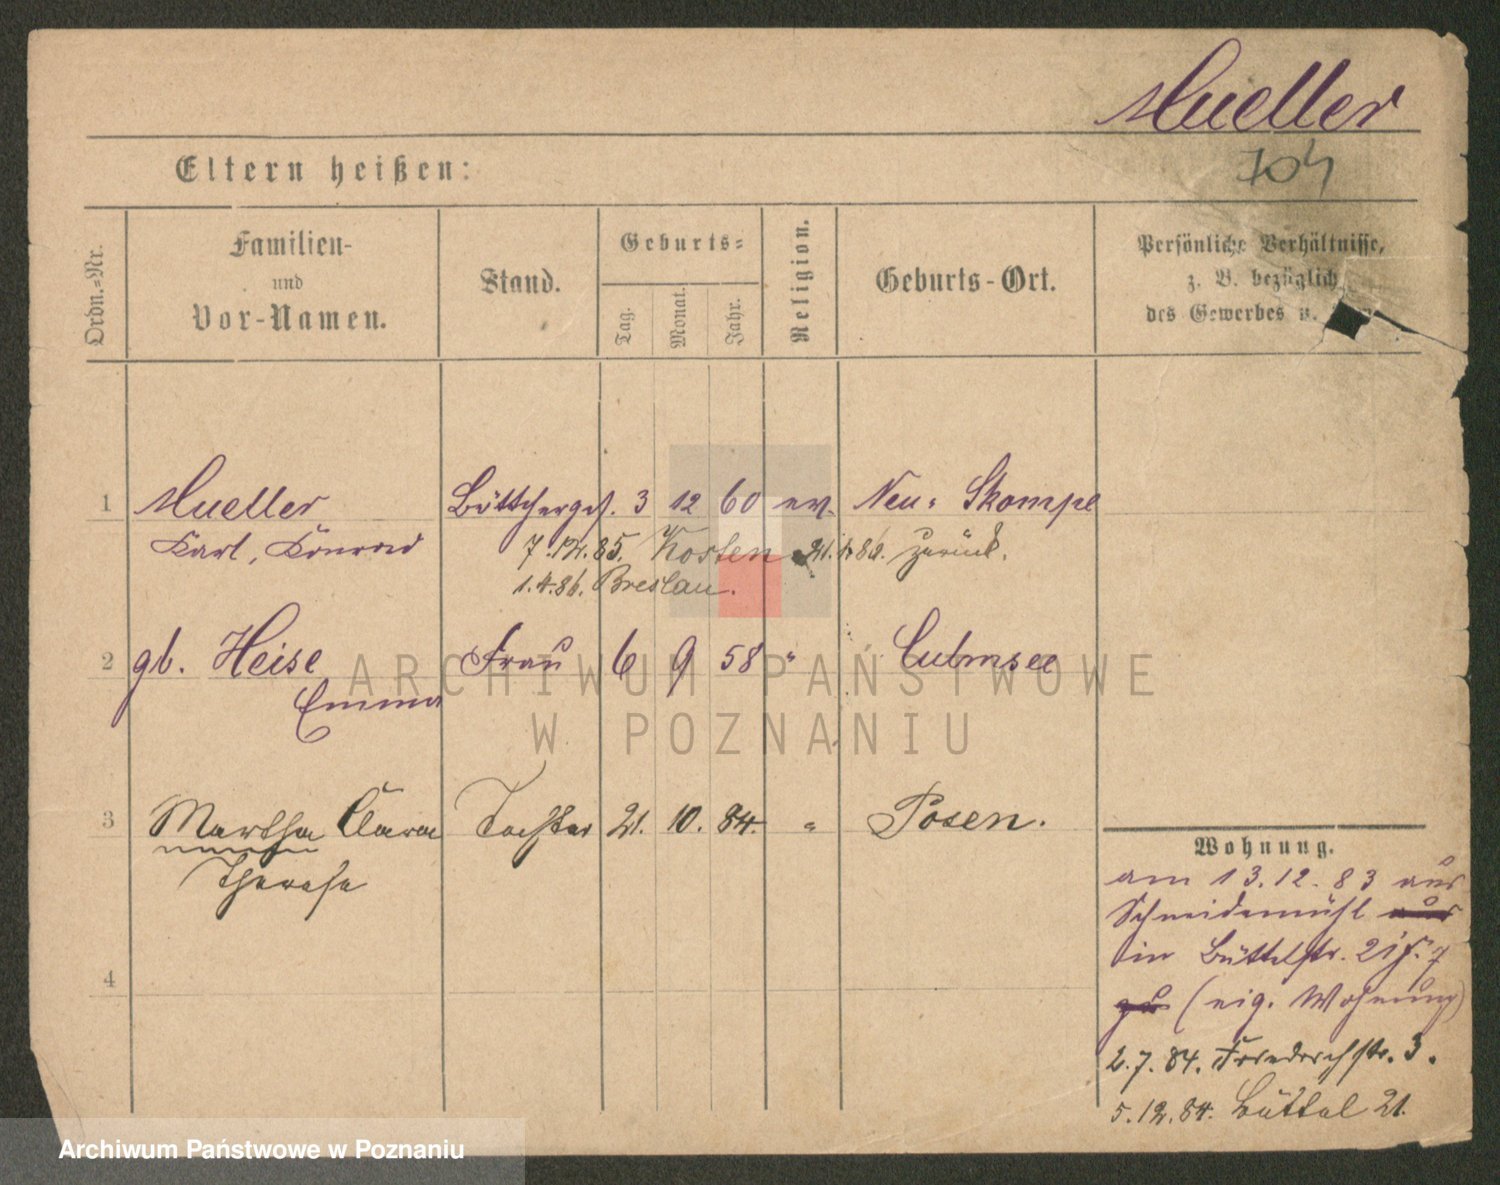 Mueller
704
Eltern heißen:
Ordn.-Nr.
Familien-
und
Vor-Namen.
Stand.
Geburts-
Tag.
Monat.
Jahr.
Religion.
Geburts-Ort.
Persönliche Verhältnisse,
z. B. bezüglich
des Gewerbes u.
1 Mueller Böttcherges. 3 12 60 ev. Neu-Skompe
Karl, Konrad 7.12.85. Kosten zurück.
1.4.86. Breslau.
2 gb. Heise Frau 6 9 58 " Culmsee
Emma
3 Martha Clara Tochter 21. 10. 84. " Posen.
Therese
4
Wohnung.
am 13.12.83 aus
Schneidemühl aus
in Büttelstr. 21
zu (eig. Wohnung)
2.7.84. Friedrichstr. 3.
5.12.84. Büttel 21.
ARCHIWUM PAŃSTWOWE
W POZNANIU
Archiwum Państwowe w Poznaniu